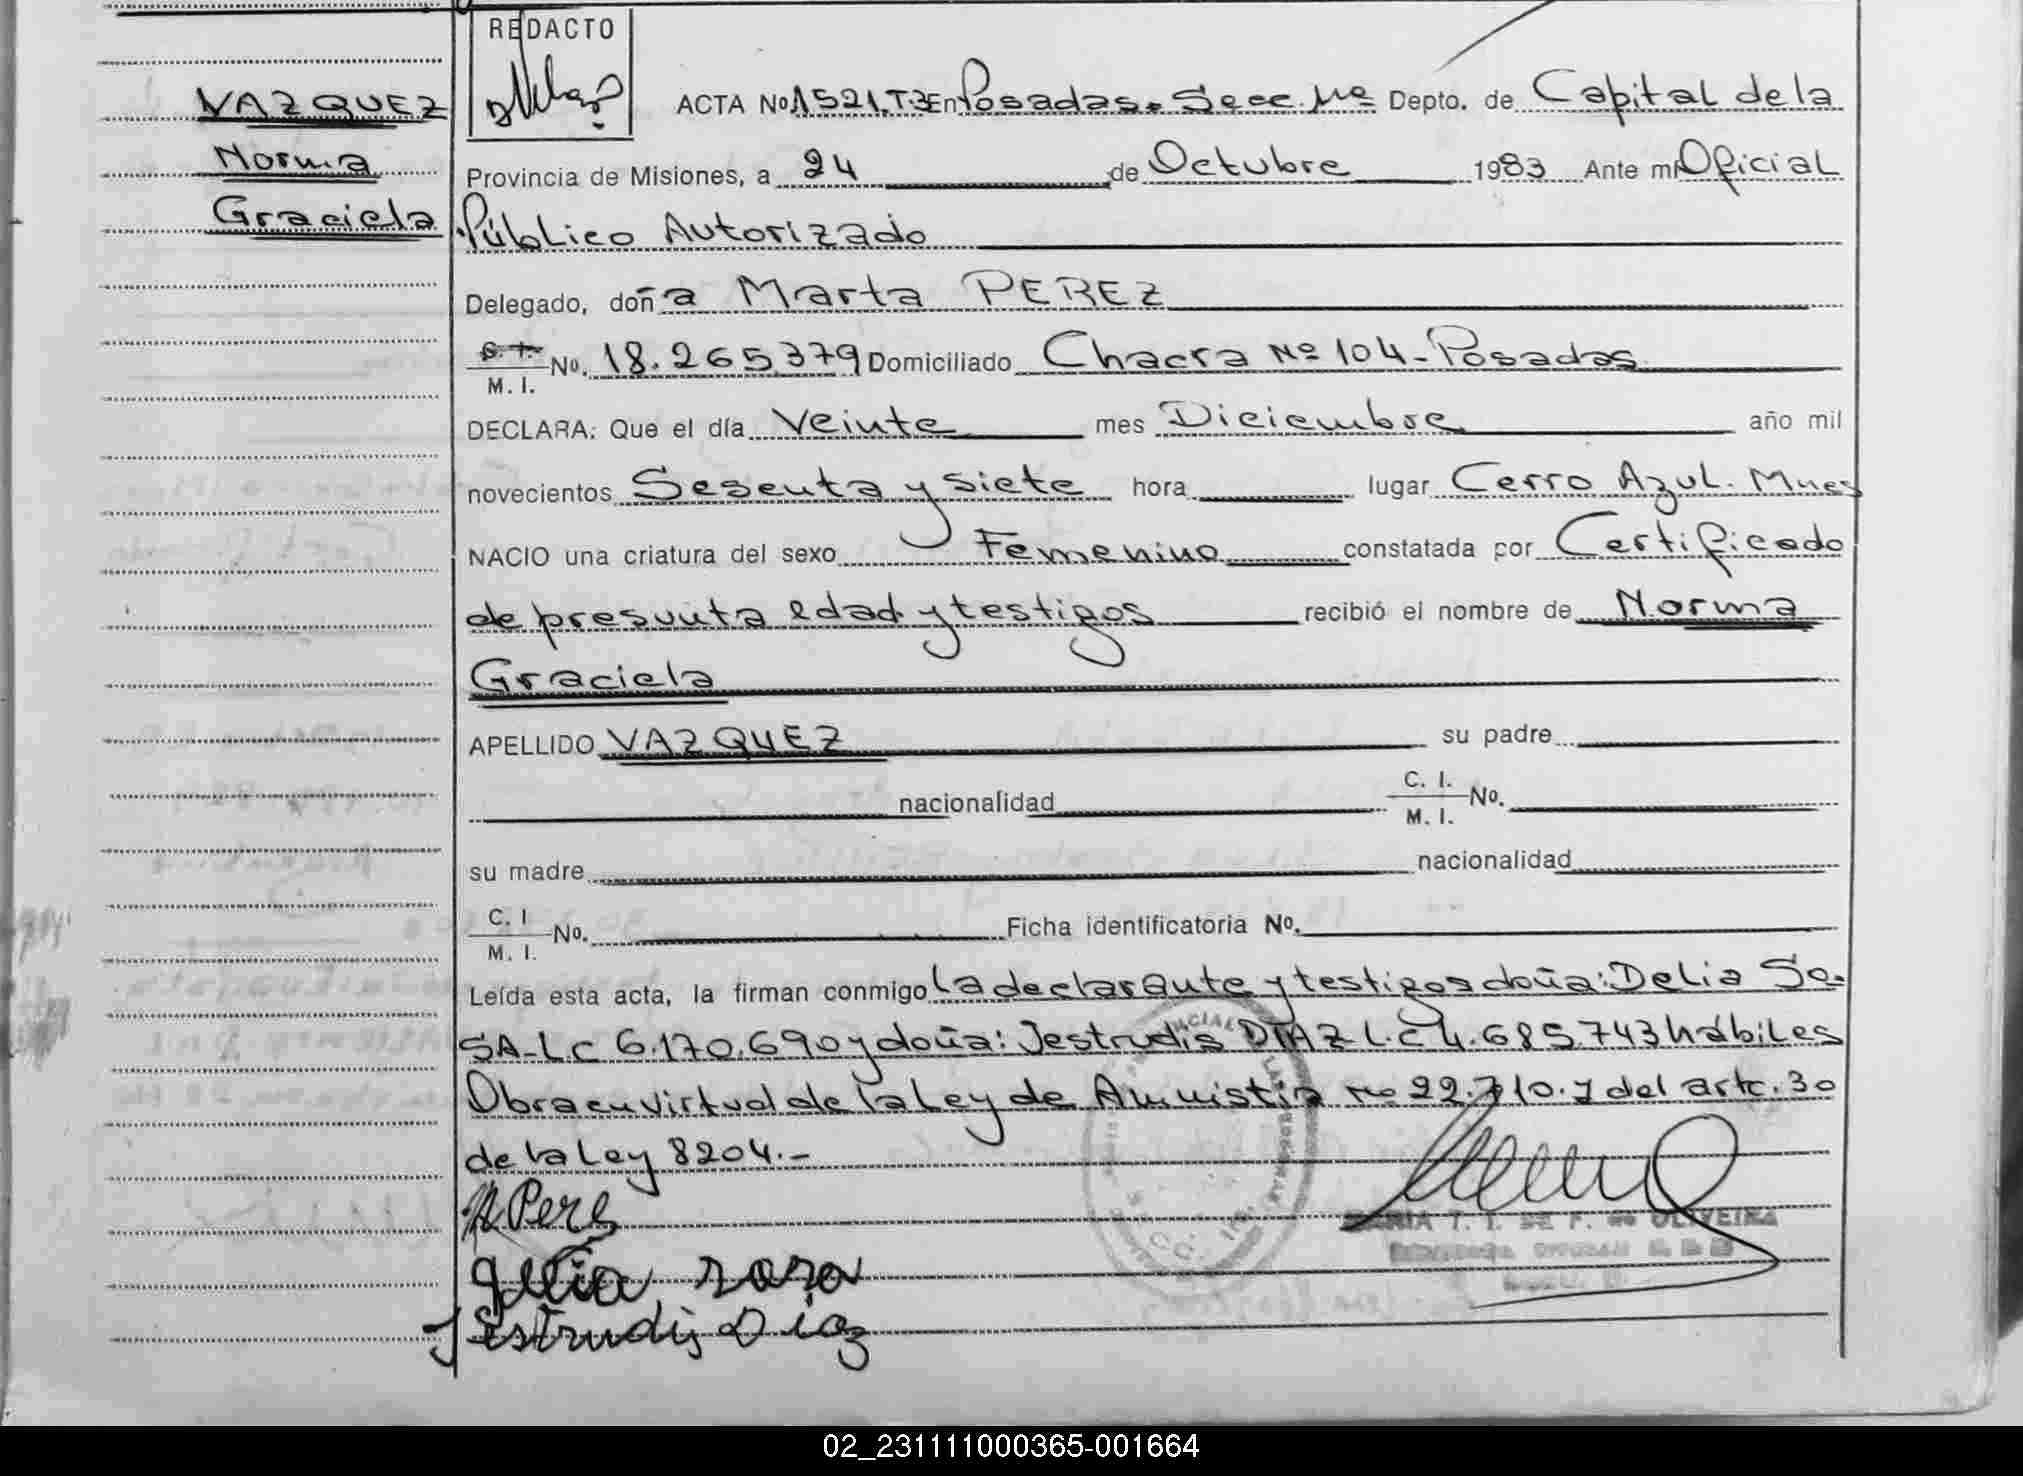 REDACTO
VAZQUEZ
Norma
Graciela
ACTA Nº 1521, T:3 En Posadas. Secc. 11ª Depto. de Capital de la
Provincia de Misiones, a 24 de Octubre 1983 Ante mi Oficial
Público Autorizado
Delegado, doña Marta PEREZ
C. I.
M. I. Nº. 18.265.379 Domiciliado Chacra Nº 104 - Posadas
DECLARA: Que el día Veinte mes Diciembre año mil
novecientos Sesenta y siete hora lugar Cerro Azul. Mnes
NACIO una criatura del sexo Femenino constatada por Certificado
de presunta edad y testigos recibió el nombre de Norma
Graciela
APELLIDO VAZQUEZ su padre
nacionalidad C. I. M. I. Nº.
su madre nacionalidad
C. I M. I. Nº. Ficha identificatoria Nº.
Leída esta acta, la firman conmigo la declarante y testigos doña: Delia So-
SA - LC 6.170.690 y doña: Jestrudis DIAZ L.C 4.685.743 hábiles
Obra en virtud de la Ley de Amnistia Nº 22.710. y del artc. 30
de la Ley 8204.-
M Pere
Delia sosa
Jestrudis Diaz
MARIA T. I. DE F. DE OLIVEIRA
02_231111000365-001664